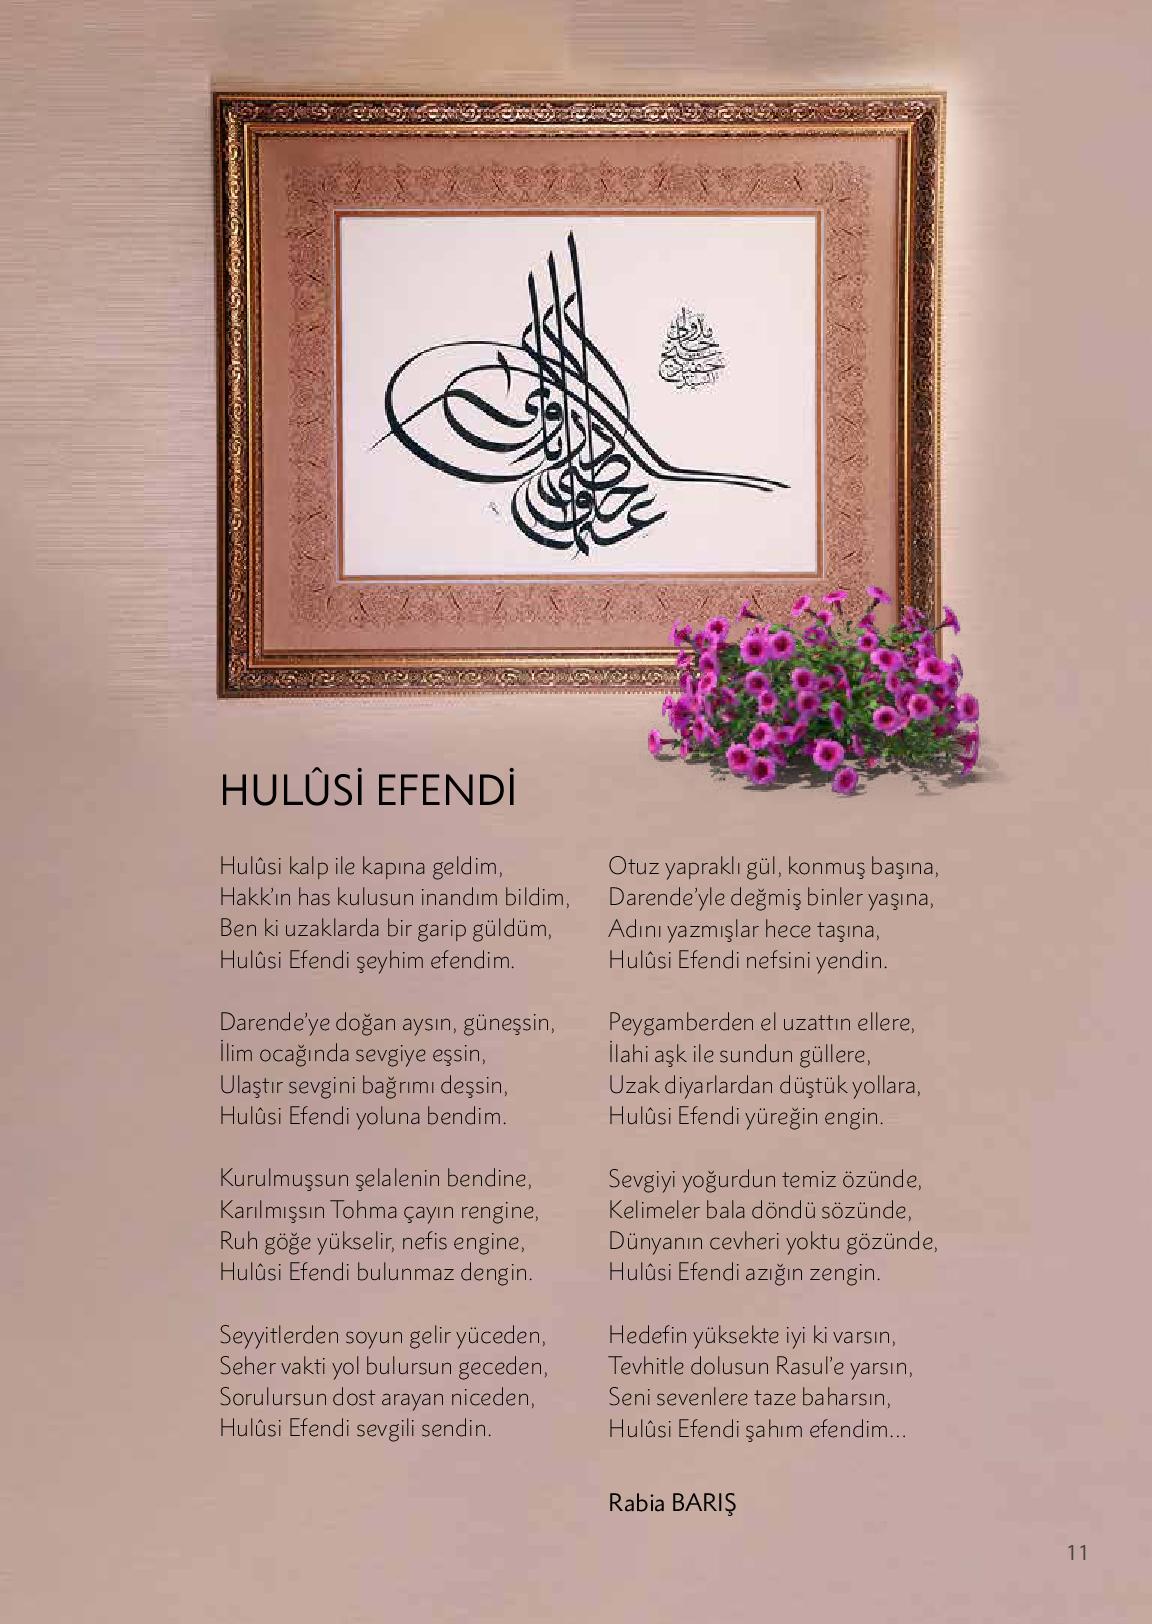 HULÛSİ EFENDİ
Hulûsi kalp ile kapına geldim,
Hakk’ın has kulusun inandım bildim,
Ben ki uzaklarda bir garip güldüm,
Hulûsi Efendi şeyhim efendim.
Darende’ye doğan aysın, güneşsin,
İlim ocağında sevgiye eşsin,
Ulaştır sevgini bağrımı deşsin,
Hulûsi Efendi yoluna bendim.
Kurulmuşsun şelalenin bendine,
Karılmışsın Tohma çayın rengine,
Ruh göğe yükselir, nefis engine,
Hulûsi Efendi bulunmaz dengin.
Seyyitlerden soyun gelir yüceden,
Seher vakti yol bulursun geceden,
Sorulursun dost arayan niceden,
Hulûsi Efendi sevgili sendin.
Otuz yapraklı gül, konmuş başına,
Darende’yle değmiş binler yaşına,
Adını yazmışlar hece taşına,
Hulûsi Efendi nefsini yendin.
Peygamberden el uzattın ellere,
İlahi aşk ile sundun güllere,
Uzak diyarlardan düştük yollara,
Hulûsi Efendi yüreğin engin.
Sevgiyi yoğurdun temiz özünde,
Kelimeler bala döndü sözünde,
Dünyanın cevheri yoktu gözünde,
Hulûsi Efendi azığın zengin.
Hedefin yüksekte iyi ki varsın,
Tevhitle dolusun Rasul’e yarsın,
Seni sevenlere taze baharsın,
Hulûsi Efendi şahım efendim...
Rabia BARIŞ
11